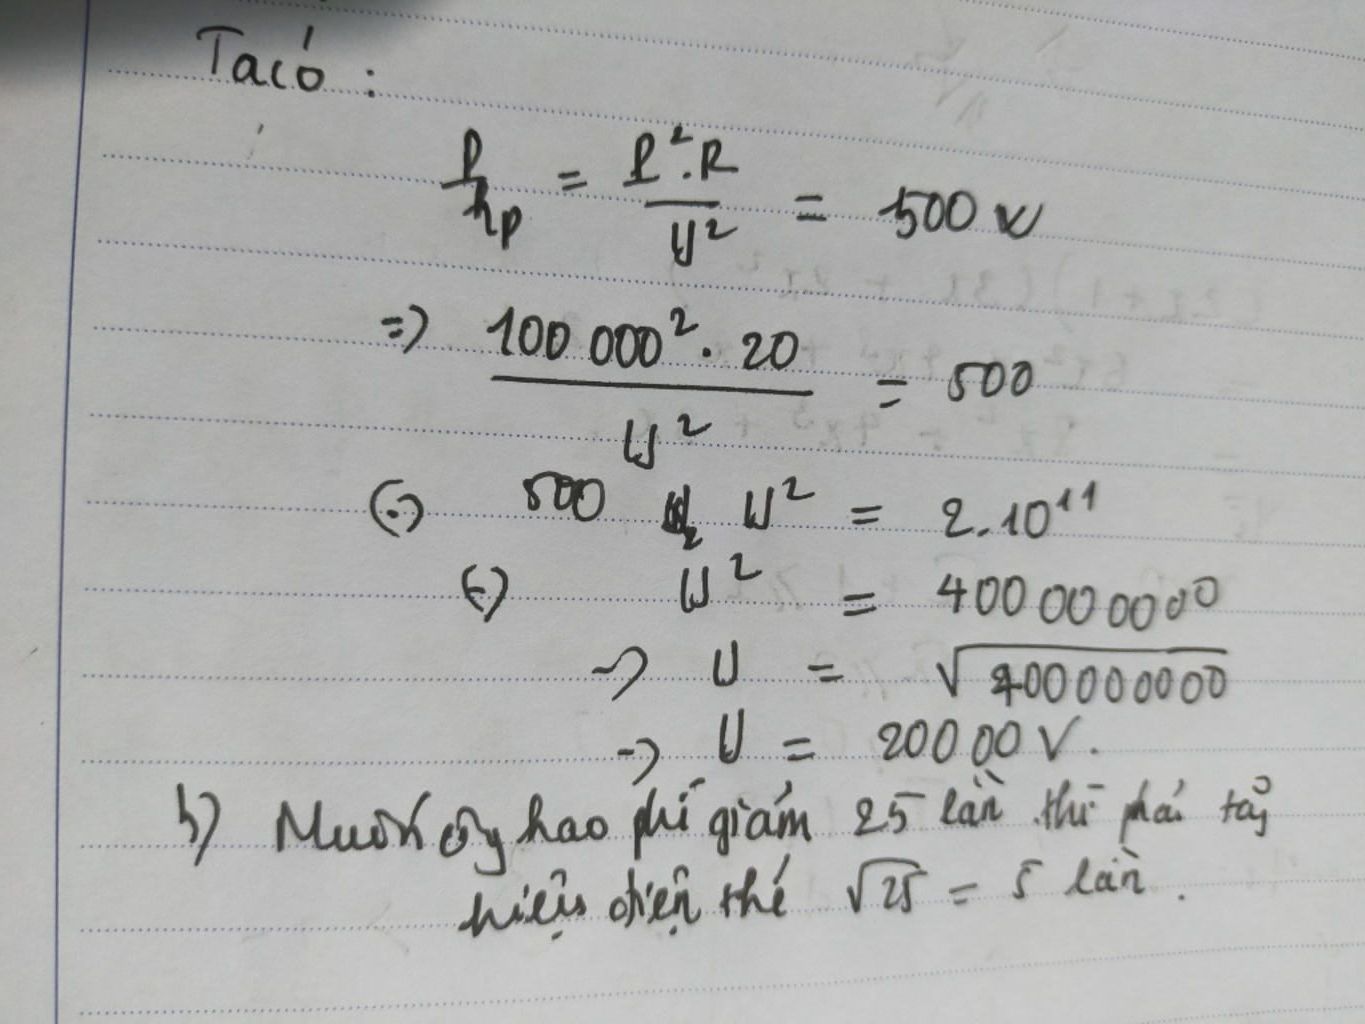 Ta có :
P hp = P².R / U² = 500 W
=> 100 000² . 20 / U² = 500
(=) 500 U² = 2.10¹¹
(=) U² = 400 000 000
-> U = √400000000
-> U = 20000 V.
b) Muốn hao phí giảm 25 lần thì phải tăg
hiệu điện thế √25 = 5 lần.